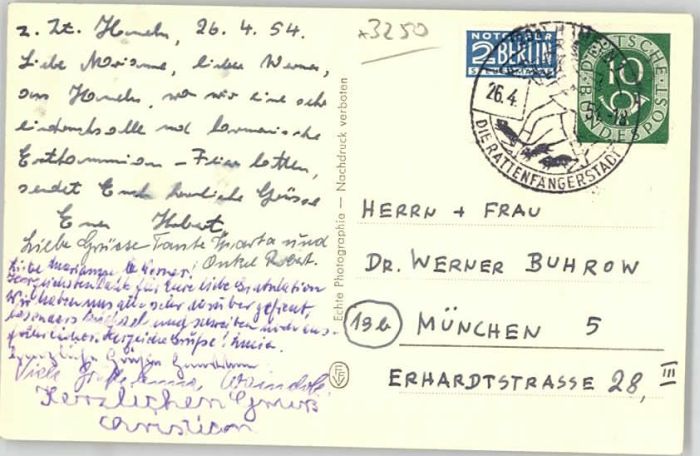 z. Zt. Hameln, 26. 4. 54.
Liebe Marianne, lieber Werner,
aus Hameln, wo wir eine sehr
eindrucksvolle und harmonische
- Feier hatten,
sendet Euch herzliche Grüsse
Euer Hubert
Liebe Grüsse Tante Marta und
Onkel Robert.
Liebe Marianne, lb. Werner!
Herzlichsten Dank für Eure liebe Gratulation
Wir haben uns alle sehr darüber gefreut,
besonders und schreiben
Herzliche Grüße!
Herzliche Grüße
Viele Grüße
Herzlichen Gruß
Christian
+3250
NOTOPFER
2 BERLIN
STEUERMARKE
26.4.
54.-18
DIE RATTENFÄNGERSTADT
DEUTSCHE
10
BUNDESPOST
Echte Photographie — Nachdruck verboten
HERRN + FRAU
DR. WERNER BUHROW
13b MÜNCHEN 5
ERHARDTSTRASSE 28, III